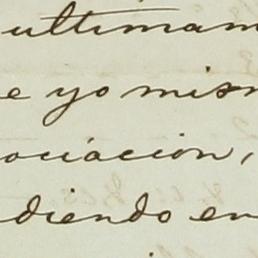 ultimam
e yo mism
ociación,
diendo en